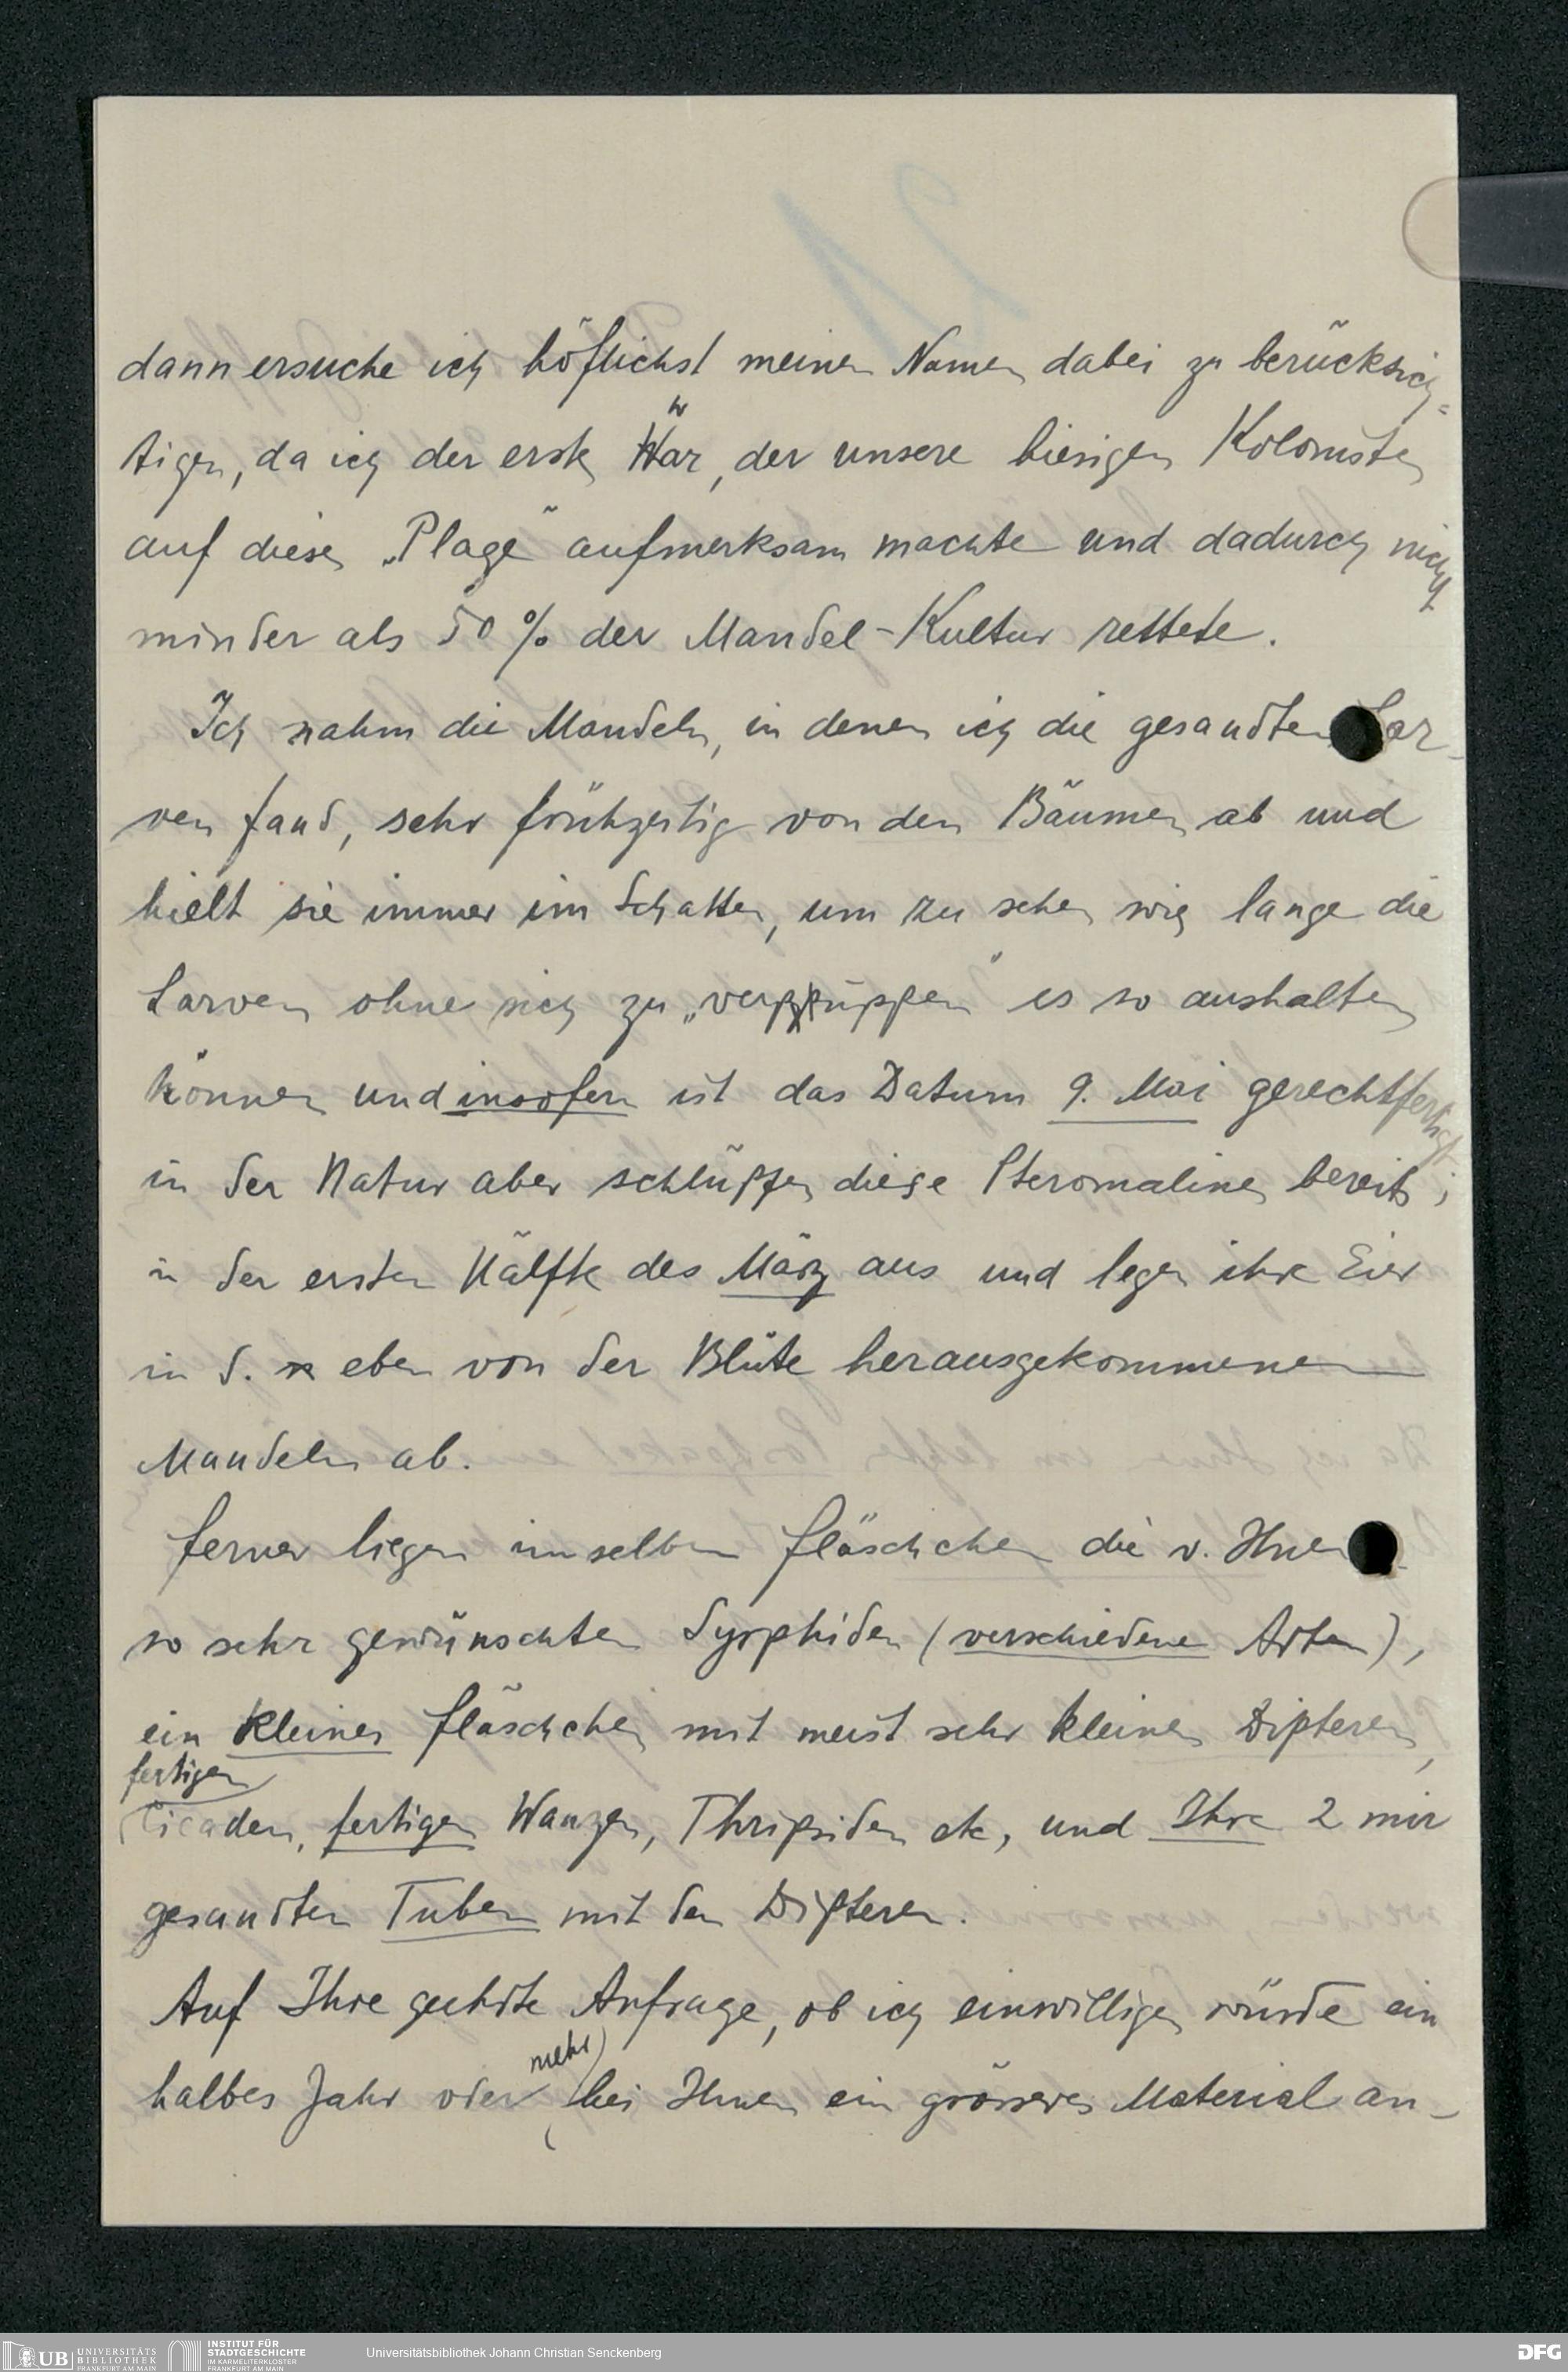 dann ersuche ich höflichst meinen Namen dabei zu berücksich=
tigen, da ich der erste war, der unsere hiesigen Kolonisten
auf diese „Plage" aufmerksam machte und dadurch nicht
minder als 50 % der Mandel-Kultur rettete.
Ich nahm die Mandeln, in denen ich die gesandten Lar-
ven fand, sehr frühzeitig von den Bäumen ab und
hielt sie immer im Schatten, um zu sehen wie lange die
Larven ohne sich zu „verpuppen" es so aushalten
können und insofern ist das Datum 9. Mai gerechtfertigt;
in der Natur aber schlüpfen diese Pteromalinen bereits
in der ersten Hälfte des März aus und legen ihre Eier
in d. eben von der Blüte herausgekommenen
Mandeln ab.
Ferner liegen im selben Fläschchen die v. Ihnen
so sehr gewünschten Syrphiden (verschiedene Arten),
ein kleines Fläschchen mit meist sehr kleinen Dipteren,
fertigen
Cicaden, fertigen Wanzen, Thripsiden etc, und Ihre 2 mir
gesandten Tuben mit den Dipteren.
Auf Ihre geehrte Anfrage, ob ich einwilligen würde ein
mehr
halbes Jahr oder bei Ihnen ein grösseres Material an-
UB
UNIVERSITÄTS
BIBLIOTHEK
FRANKFURT AM MAIN
INSTITUT FÜR
STADTGESCHICHTE
IM KARMELITERKLOSTER
FRANKFURT AM MAIN
Universitätsbibliothek Johann Christian Senckenberg
DFG